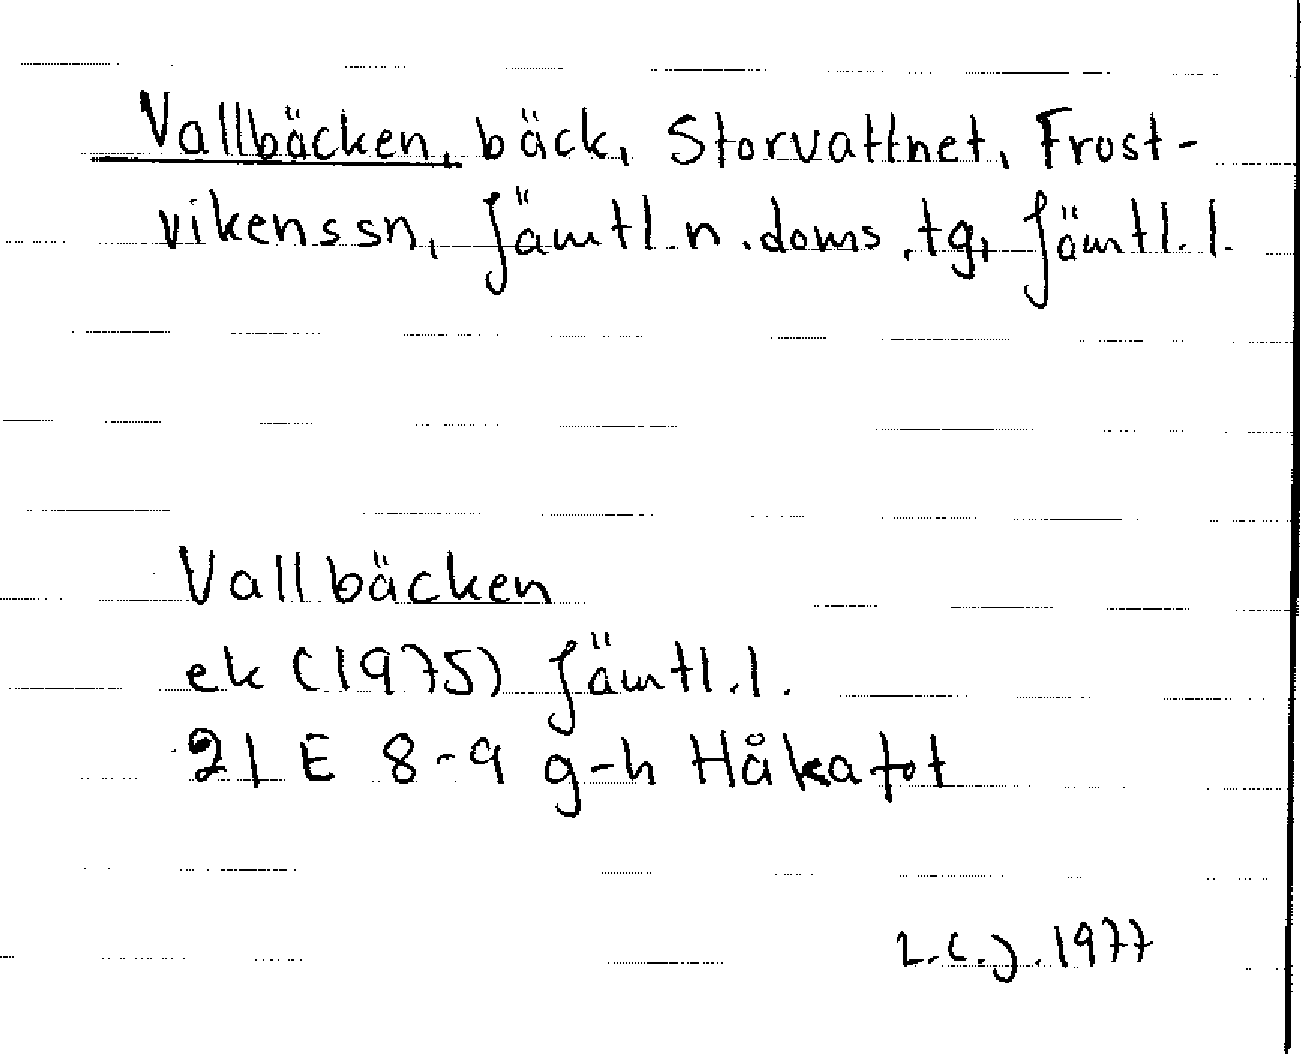 Vallbäcken, bäck, Storvattnet, Frost-
vikens sn, Jämtl. n. doms. tg, Jämtl. l.
Vallbäcken
ek (1975) Jämtl. l.
21 E 8-9 g-h Håkafot
L.C.J. 1977